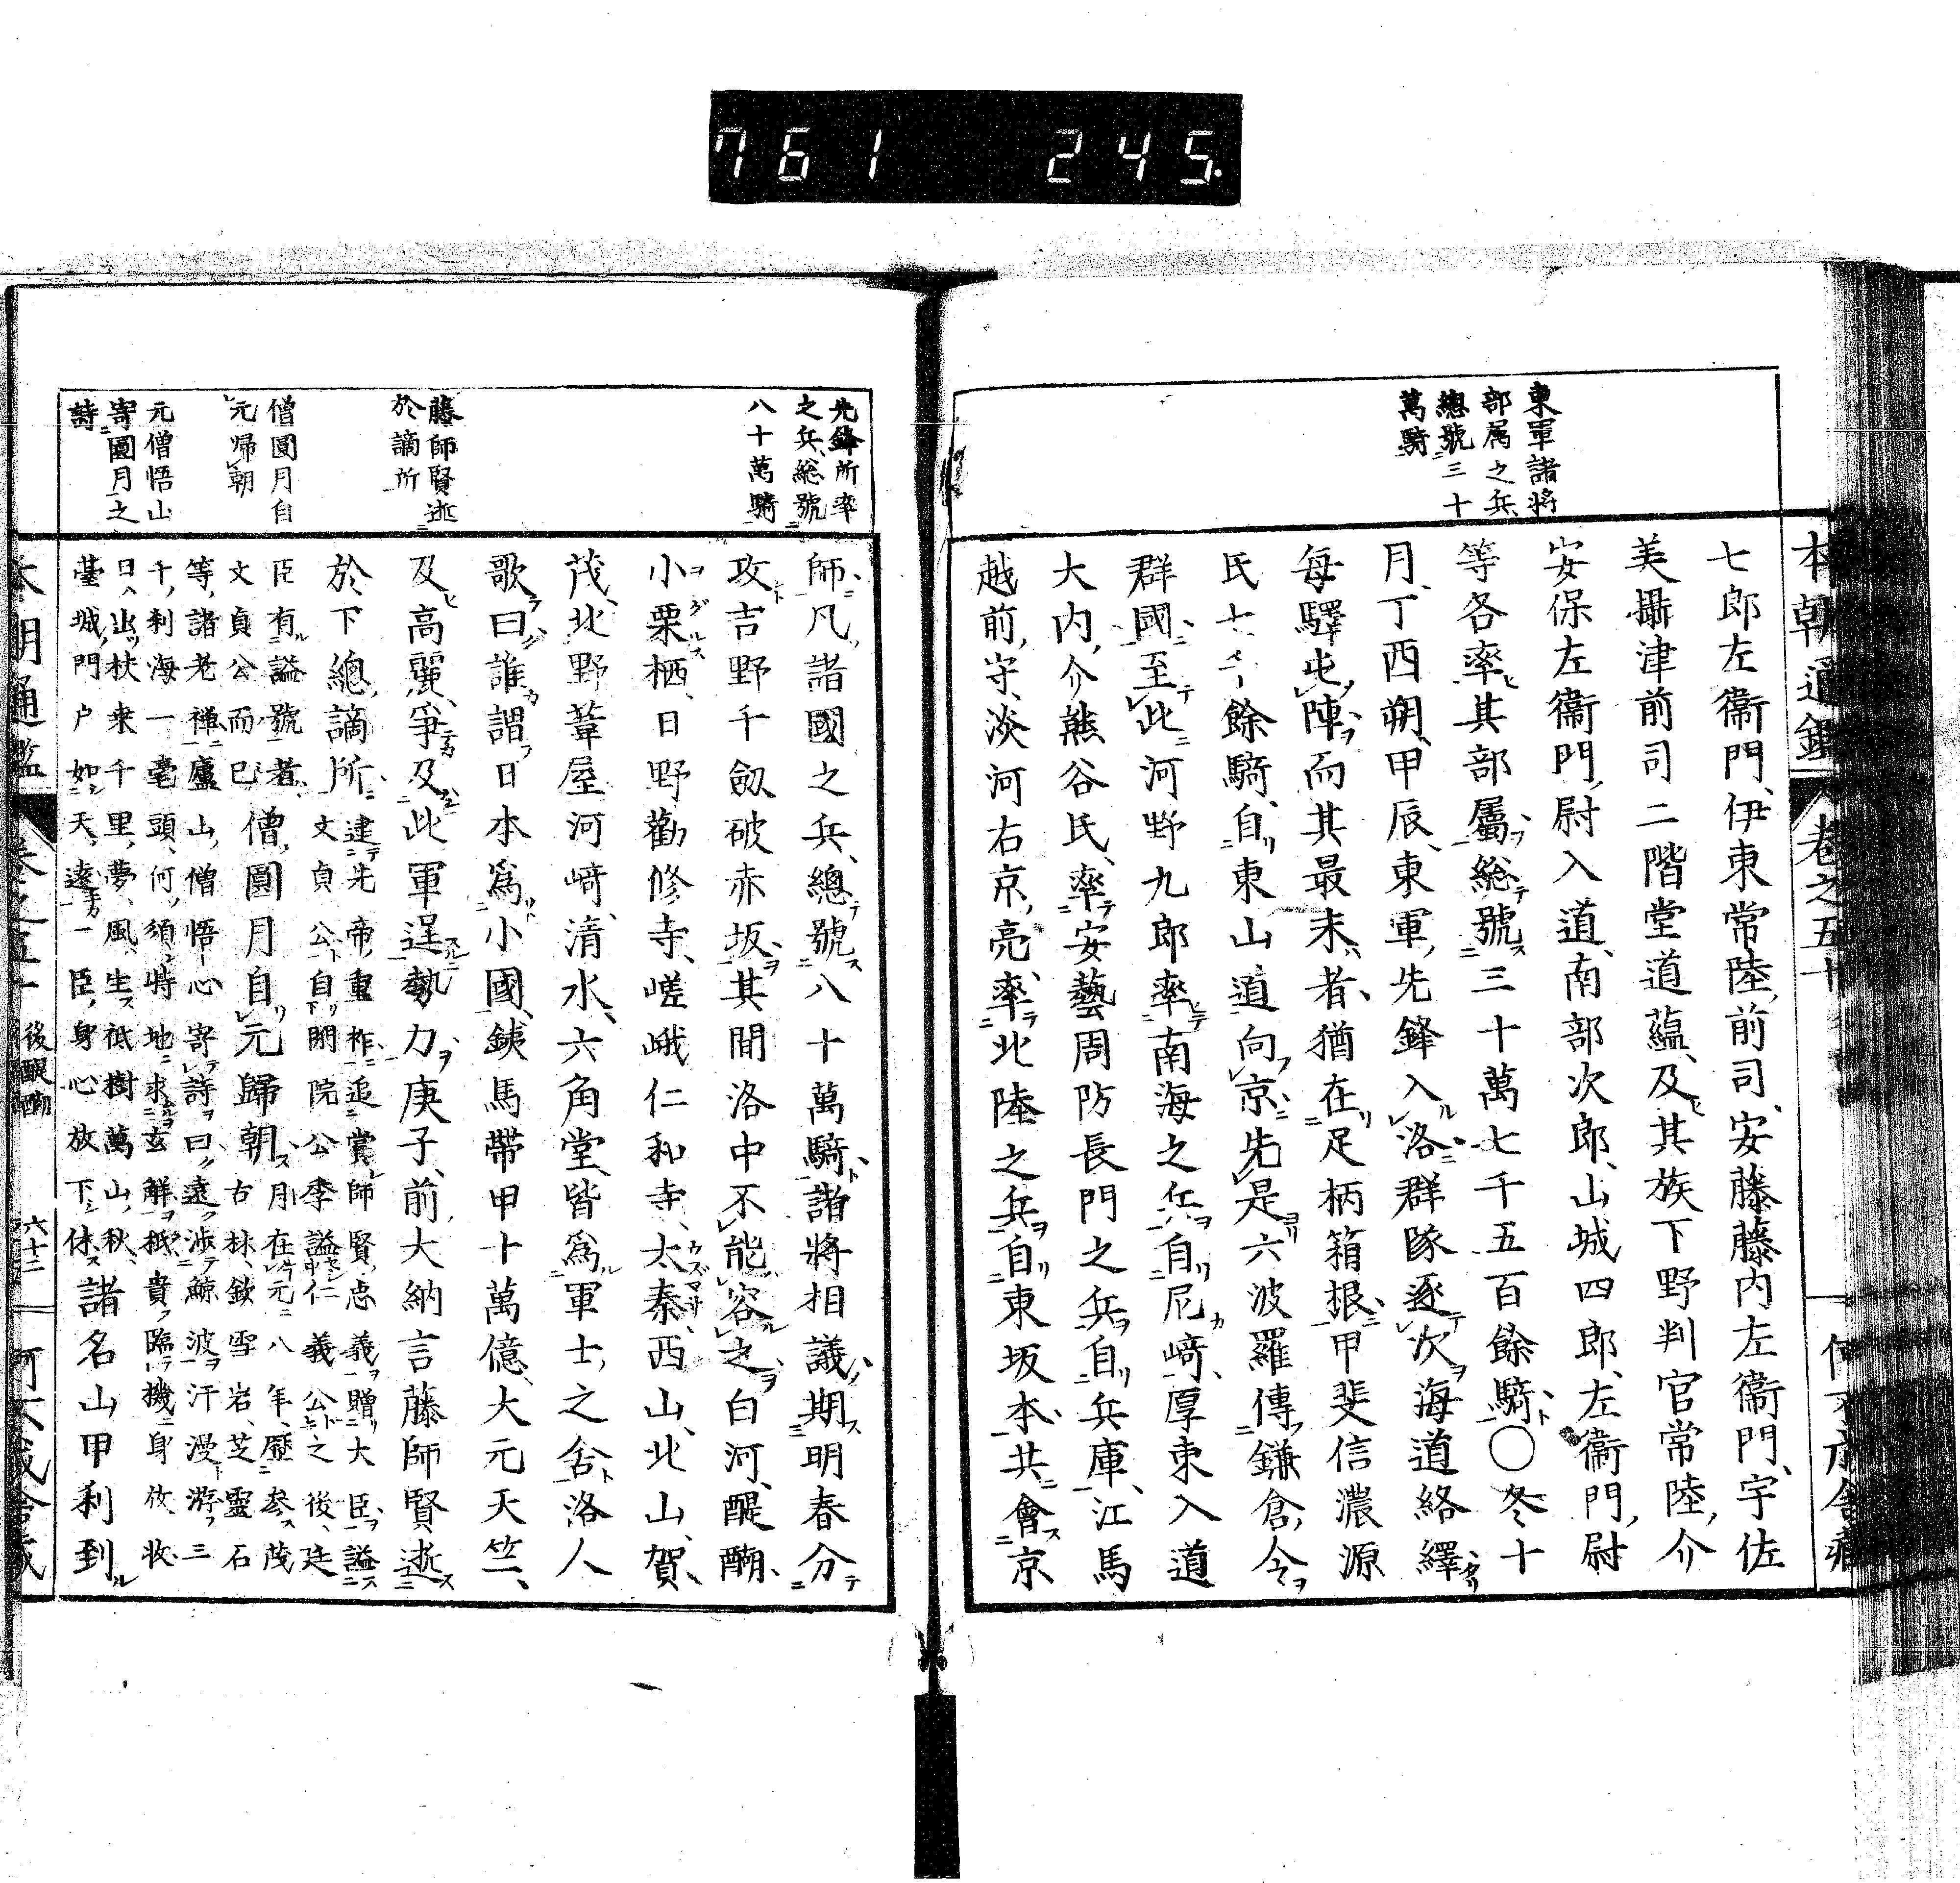 761 245.
東軍諸將
部屬之兵
總號三十
萬騎
七郎左衞門、伊東常陸前司、安藤藤內左衞門、宇佐
美攝津前司二階堂道蘊、及其族下野判官常陸介
安保左衞門尉入道、南部次郎、山城四郎、左衞門尉
等各率其部屬總號三十萬七千五百餘騎〇冬十
月、丁酉朔、甲辰、東軍先鋒入洛群隊逐次海道絡繹
每驛屯陣而其最末者、猶在足柄箱根甲斐信濃源
氏七千餘騎、自東山道向京、先是六波羅傳鎌倉令
群國至此河野九郎率南海之兵自尼﨑、厚東入道
大内介熊谷氏、率安藝周防長門之兵自兵庫、江馬
越前守、淡河右京亮、率北陸之兵自東坂本、共會京
先鋒所率
之兵總號
八十萬騎
藤師賢逝
於謫所
僧圓月自
元歸朝
元僧悟山
寄圓月之
詩
師凡諸國之兵、總號八十萬騎、諸將相議期明春分
攻吉野千劔破赤坂、其間洛中不能容之白河、醍醐、
小栗栖、日野勸修寺、嵯峨仁和寺、太秦西山、北山、賀
茂、北野葦屋河﨑清水、六角堂、皆爲軍士之舍洛人
歌曰誰謂日本爲小國、銕馬帶甲十萬億、大元天竺、
及高麗、爭及此軍逞勢力、庚子、前大納言藤師賢逝
於下總謫所、逮先帝重祚追賞師賢忠義贈大臣謚
文貞公自閑院公季謚仁義公之後、廷
臣有謚號者、
文貞公而已僧圓月自元歸朝、月在元八年、歷參茂
古林、欽雪岩、芝靈石
等、諸老禪廬山僧悟心寄詩曰、遠涉鯨波汗漫游三
千刹海一毫頭、何須特地求玄解秪貴臨機身放收
日出扶桒千里夢、風生祗樹萬山秋、
臺城門戶如天遠一臣身心放下休諸名山甲刹到
本朝通鑑 卷之五十 後醍醐 六十二